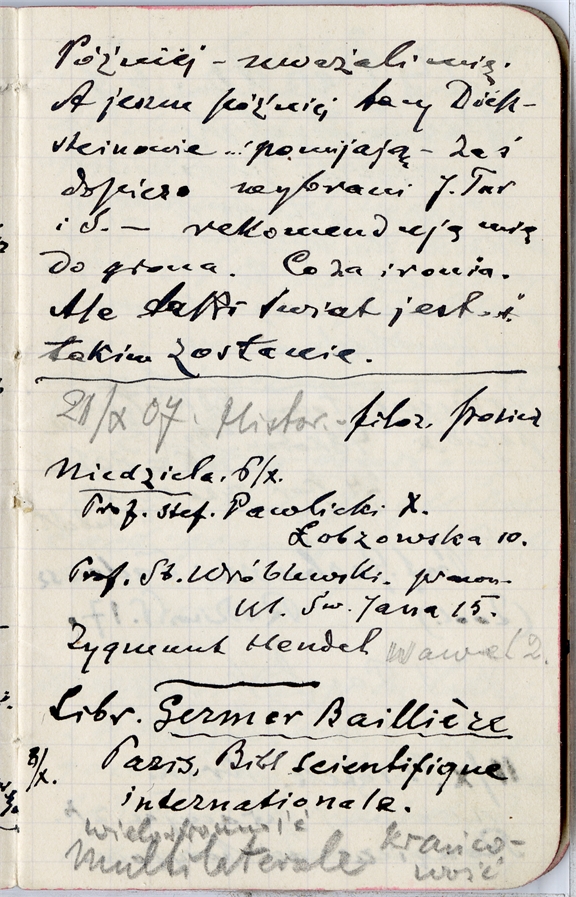 Później – uważali mię.
A jeszcze później tacy Dick-
steinowie ... pomijają – zaś
dopiero wybrani J. Tur
i S. – rekomendują mię
do grona. Co za ironia.
Ale taki świat jest i
takim zostanie.
21/X 07. Histor. - filoz.
Niedziela. 6/X.
Prof. Stef. Pawlicki X.
Łobzowska 10.
Prof. St. Wróblewski.
Ul. Św. Jana 15.
Zygmunt Hendel Wawel 2.
Libr. Germer Baillière
8/X. Paris, Bibl scientifique
internationale.
wielostronność
multilaterale
krańco-
wość